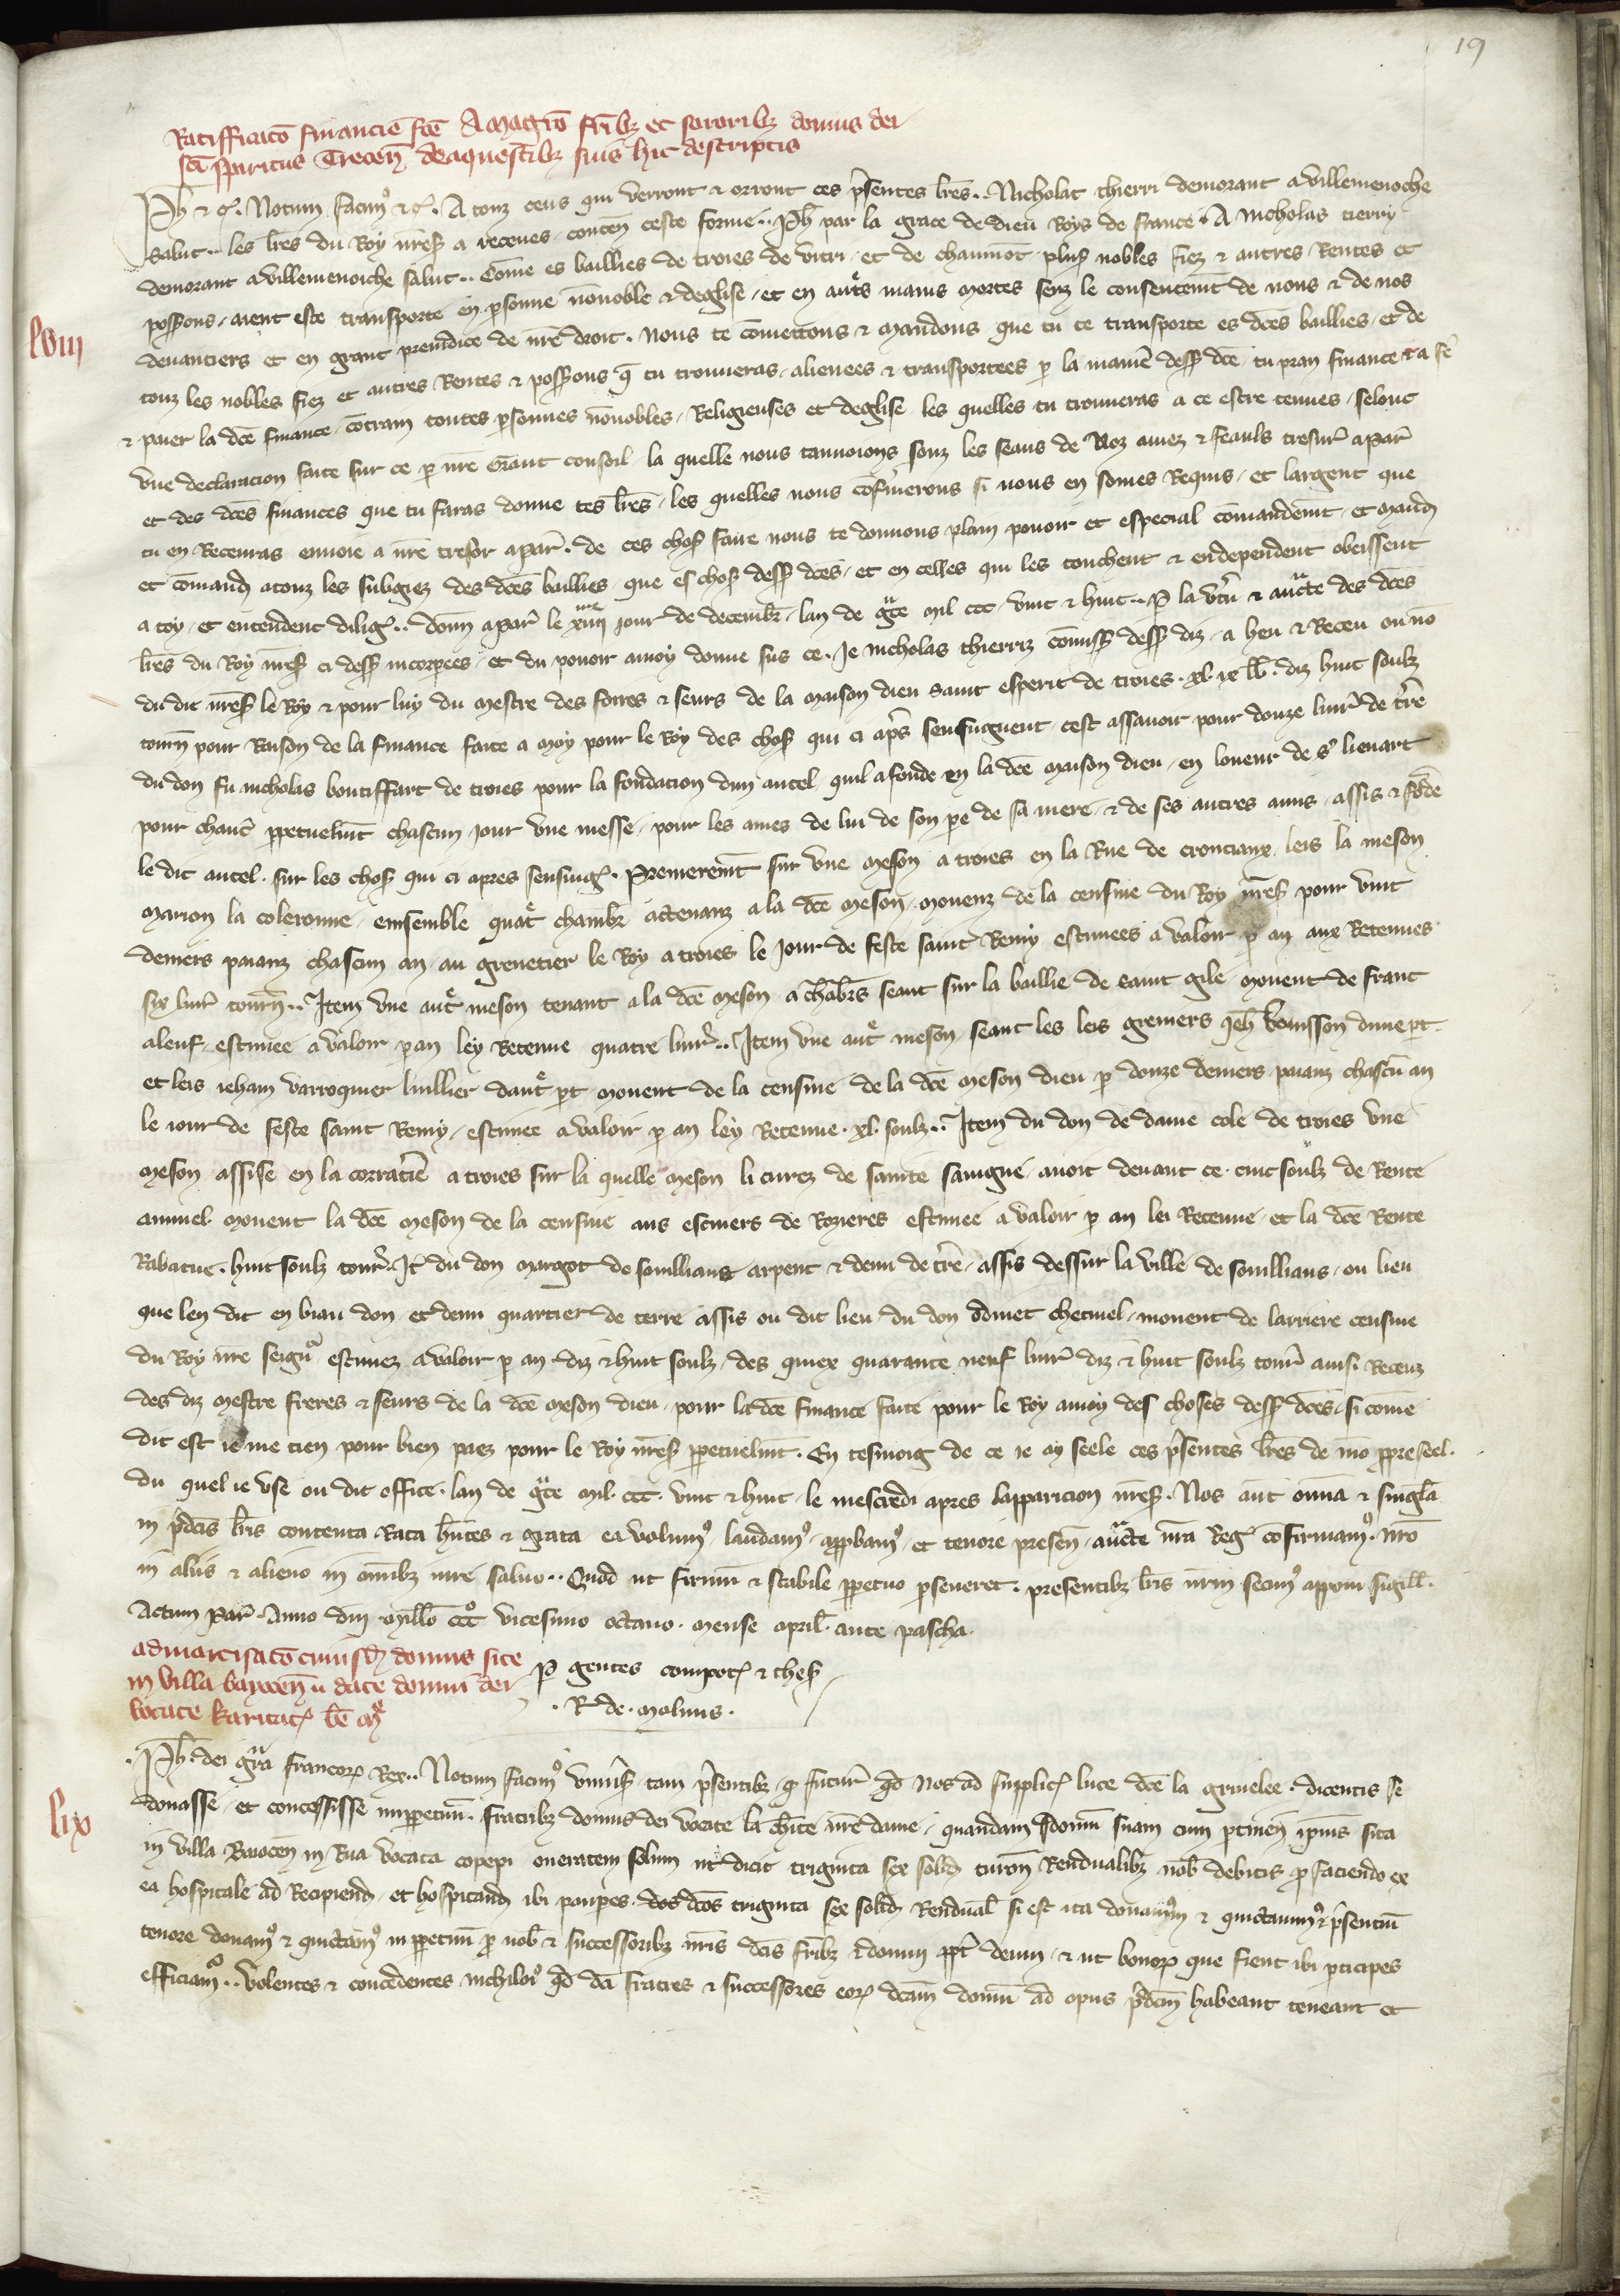 19
Ratifficacō financiē fcē A magrō frībz et sororibz domus dei
scī spiritus Trecen̄ de aquestibz suis hic descriptis
Ph̄ &c. Notum facim9 &c. A touz ceus qui verront & orront ces p̄sentes lr̄es.. Nicholas thierri demorant a villemenoche
salut.. les lr̄es du Roy nr̄eſ a receues conten̄ ceste forme.. Ph̄ par la grace de dieu Roys de france A nicholas tierry
demorant a villemenoiche salut.. Com̄e es baillies de troies de vitri et de chaumōt plus nobles fiez & autres Rentes et
possons aient este transporte en psonne nōnoble & deglise et en autˢ mains mortes senz le consentemt̄ de nous & de nos
lviii
deuanciers et en grant preiudice de nr̄e droit. Nous te cōmettons & mandons que tu te transporte es dc̄es baillies et de
touz les nobles fiez et autres Rentes & possons q̄ tu trouueras alienees & transportees p la manie᷑ dess dc̄e tu pran finance & a fe᷑
& paier la dc̄e finance cōtrain toutes psonnes nōnobles Religieuses et deglise les quelles tu trouueras a ce estre tenues selonc
vne declaracion faite sur ce p nr̄e Grant conseil la quelle nous tanuoions souz les seaus de Noz amez & feauls tresur᷑ a par᷑
et des dc̄es finances que tu faras donne tes lr̄es les quelles nous cōfmerons si nous en somes Requis et largent que
tu en Receuras enuoie a nr̄e tresor a par᷑. de ces chos faire nous te donnons plain pouoir et especial cōmandemt̄ et mand
et cōmand a touz les subgiez des dc̄es baillies que es chos dess dc̄es et en celles qui les touchent & en dependent obeissent
a toy et entendent dilig.. Donn̄ a par᷑ le xiiii jour de decembr lan de gc̄e mil ccc vint & huit.. P la vtu & auctē des dc̄es
lr̄es du Roy nr̄eſ ci dess incorpees et du pouoir a moy donne sus ce. Je nicholas thierriz cōmiss dess diz a heu & Receu ou nō
du dit nr̄eſ le Roy & pour luy du mestre des freres & seurs de la maison dieu saint esperit de troies. xl. ix lb. diz huit soulz
tourn̄ pour Raison de la finance faite a moy pour le Roy des chos qui ci ap̄s sensuguent cest assauoir pour douze liur᷑ de tr̄e
du don fu nicholas boutiffart de troies pour la fondacion dun autel quil a fonde en la dc̄e maison dieu en loneur de st̄ lienart
pour chant᷑ ppetuelmt̄ chascun jour vne messe pour les ames de lui de son pe de sa mere & de ses autres amis assis & fōde
le dit autel sur les chos qui ci apres sensuig. Premieremt̄ sur vne meson a troies en la Rue de cronciaux leis la meson
marion la coleronne ensemble quatˢ chambr attenanz a la dc̄e meson mouenz de la censiue du Roy nr̄eſ pour vint
deniers paianz chascun an au grenetier le Roy a troies le Jour de feste saint Remi estimees a valoir p an aux Retenues
six liur᷑ tourn̄.. Item vne autˢ meson tenant a la dc̄e meson a chābrs seant sur la baillie de saint gile mouent de franc
aleuf estimee a valoir p an ley Retenue quatre liur᷑.. Item vne autˢ meson seant les leis greniers Jeh bouisson dune pt
et leis ieham varroquier luillier dautˢ pt mouent de la censiue de la dc̄e meson dieu p douze deniers paianz chascū an
le iour de feste saint Remy estimee a valoir p an ley Retenue. xl. soulz.. Item du don de dame cole de troies vne
meson assise en la corratie᷑ a troies sur la quelle meson li curez de sainte sauigne auoit deuant ce cinc soulz de Rente
annuel mouent la dc̄e meson de la censiue aus escuiers de Rozieres estimee a valoir p an lei Retenue et la dc̄e Rente
Rabatue. huit soulz tour᷑. It̄ du don margot de souillians arpent & demi de tr̄e assis dessur la ville de souillians ou lieu
que len dit en biau don et demi quartier de terre assis ou dit lieu du don odinet chetiuel mouent de larriere censiue
du Roy nr̄e seigur estimez a valoir p an diz & huit soulz des quiex quarante neuf liur᷑ diz & huit soulz tour᷑ ainsi Receuz
des diz mestre freres & seurs de la dc̄e meson dieu pour la dc̄e finance faite pour le Roy a moy des choses dess dc̄es si com̄e
dit est ie me tien pour bien paez pour le Roy nr̄eſ ppetuelmt̄. En tesmoig de ce ie ay seele ces p̄sentes lr̄es de mō ppre seel.
du quel ie vse ou dit office. lan de gc̄e mil. ccc. vint & huit le mescredi apres lapparicion nr̄eſ. Nos aūt om̄ia & singl̄a
in p̄dcis lr̄is contenta Rata hn̄tes & grata ea volum9 laudam9 appbam9 et tenore presen̄ auctē nr̄a Reg cōfirmam9. nr̄o
in aliis & alieno in om̄ibz iure saluo.. Quod ut firmū & stabile ppetuo pseueret. presentibz lr̄is nr̄m fecim9 apponi sigill̄.
Actum par᷑. Anno dn̄i mill̄o CCC̊ vicesimo octauo. mense april̄ ante pascha.
admortisacō cuiusd domus site
in villa baiocen̄ ū date domui dei
vocate karitat be m͞e
P gentes compot & thes
R de. molinis.
lix
Ph̄. dei gr̄a francor Rex.. Notum facim9 vniu᷑s tam p̄sentibz q̄ futur᷑ qd nos ad supplic luce dc̄e la gruelee. dicentis se
donasse et concessisse impperm. fratribz domus dei vocate la ch̄ite nr̄e dame quandam domū suam cum ptinen̄ ipius sita
in villa Baiocen̄ in Rua vocata copepi oneratam solum ut dicit triginta sex solid turon̄ Rendualibz nob̄ debitis p faciendo ex
ea hospitale ad Recipiend et hospitand ibi paupes. dcos triginta sex solid Rendual̄ si est ita donauim9 & quictauim9 & p̄sentiū
tenore donam9 & quictam9 in ppetuū p nob̄ & successoribz nr̄is dcis fr̄ibz & domui ppt᷑ deum & ut bonor que fient ibi pticipes
efficiam9.. volentes & concedentes nichilo9 qd dci fratres & successores eor dcam domū ad opus p̄dcm habeant teneant et